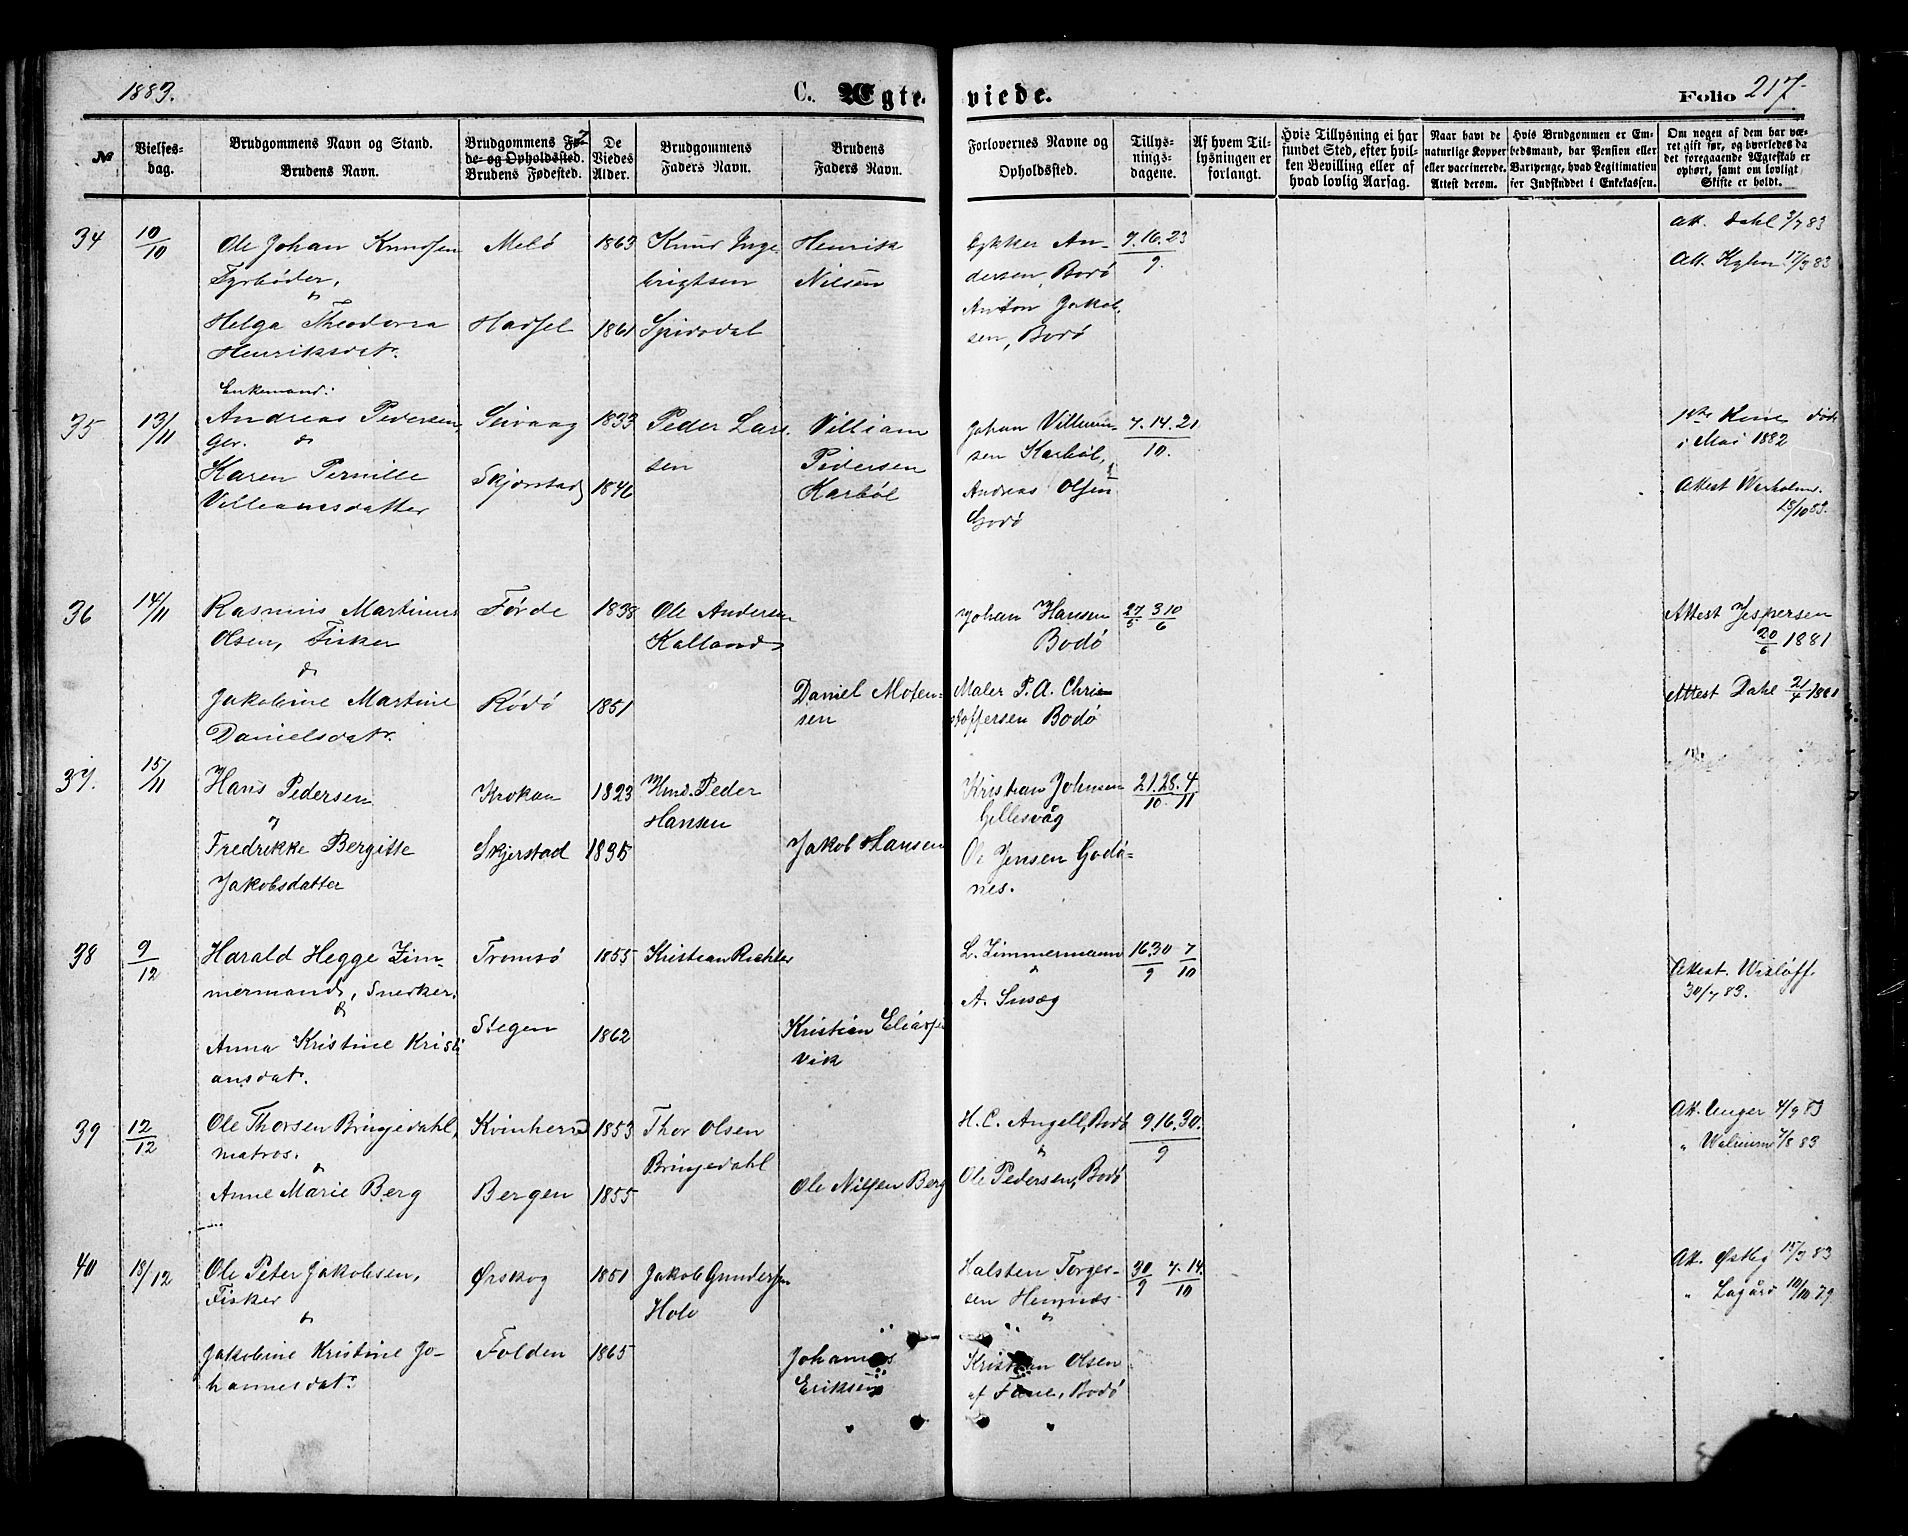 1883.
C. Ægte-
viede.
Folio 217
№
Vielses-
dag.
Brudgommens Navn og Stand.
Brudens Navn.
Brudgommens Fø-
de- og Opholdssted.
Brudens Fødested.
De
Viedes
Alder.
Brudgommens
Faders Navn.
Brudens
Faders Navn.
Forlovernes Navne og
Opholdssted.
Tillys-
nings-
dagene.
Af hvem Til-
lysningen er
forlangt.
Hvis Tillysning ei har
fundet Sted, efter hvil-
ken Bevilling eller af
hvad lovlig Aarsag.
Naar havt de
naturlige Kopper
eller vaccinerede.
Attest derom.
Hvis Brudgommen er Em-
bedsmand, har Pension eller
Vartpenge, hvad Legitimation
for Indskuddet i Enkekassen.
Om nogen af dem har væ-
ret gift før, og hvorledes da
det foregaaende Ægteskab er
ophørt, samt om lovligt
Skifte er holdt.
34
10/10
Ole Johan Knudsen
Fyrbøder,
&
Helga Theodora
Henriksdatr.
Melø
Hadsel
1863
1861
Knud Inge
brigtsen
Spidsdal
Henrik
Nilsen
Lykker An-
dersen, Bodø
Anton Jakob
sen, Bodø
7.16.23
9.
Att. Dahl 3/7 83
Att. 17/9 83
35
13/11
Enkemand:
Andreas Pedersen,
Gr. &
Karen Pernille
Villiamsdatter
Seivaag
Skjerstad
1833
1846
Peder Lars
sen
Villiam
Pedersen
Karbøl
Johan Villium
sen Karbøl,
Andreas Olsen
Godø
7.14.21
10.
1ste Kone død
i Mai 1882
Attest Werholm
18/10 83.
36
14/11
Rasmus Martinus
Olsen, Fisker
&
Jakobine Martine
Danielsdatr.
Førde
Rødø
1838
1851
Ole Andersen
Kalland
Daniel Moten-
sen
Johan Hansen
Bodø
Maler P. A. Chri-
stoffersen Bodø
27/5 3 10/6
Attest Jespersen
20/6 1881
Attest Dahl 21/4 1881
37.
15/11
Hans Pedersen
&
Fredrikke Bergitte
Jakobsdatter
Krokan
Skjerstad
1823
1835
Hmd. Peder
Hansen
Jakob Hansen
Kristian Johnsen
Gillesvåg
Ole Jensen Godø-
nes.
21.28. 4
10. 11
38
9/12
Harald Hegge Zim-
mermand, Snedker.
&
Anna Kristine Kristi
ansdatr.
Tromsø
Stegen
1855
1862
Kristian Richter
Kristian Eliassen
Vik
L. Zimmermann
&
A. Susæg
16.30 7
9 10
Attest. Wisløff
30/7 83.
39
12/12
Ole Thorsen Bringedahl,
matros.
&
Anne Marie Berg
Kvinherred
Bergen
1853
1855
Thor Olsen
Bringedahl
Ole Nilsen Berg
H. C. Angell, Bodø
&
Ole Pedersen, Bodø
9.16.30.
9
Att. Unger 4/9 83
" 7/8 83
40
18/12
Ole Peter Jakobsen,
Fisker
&
Jakobine Kristine Jo-
hannesdatr.
Ørskog
Folden
1851
1865
Jakob Gundersen
Hole
Johannes
Eriksen
Halsten Torger-
sen Hemnæs
&
Kristian Olsen
af Fane, Bodø
30 7.14.
9 10
Att. Østbg 15/9 83
" Lagård 10/10 79